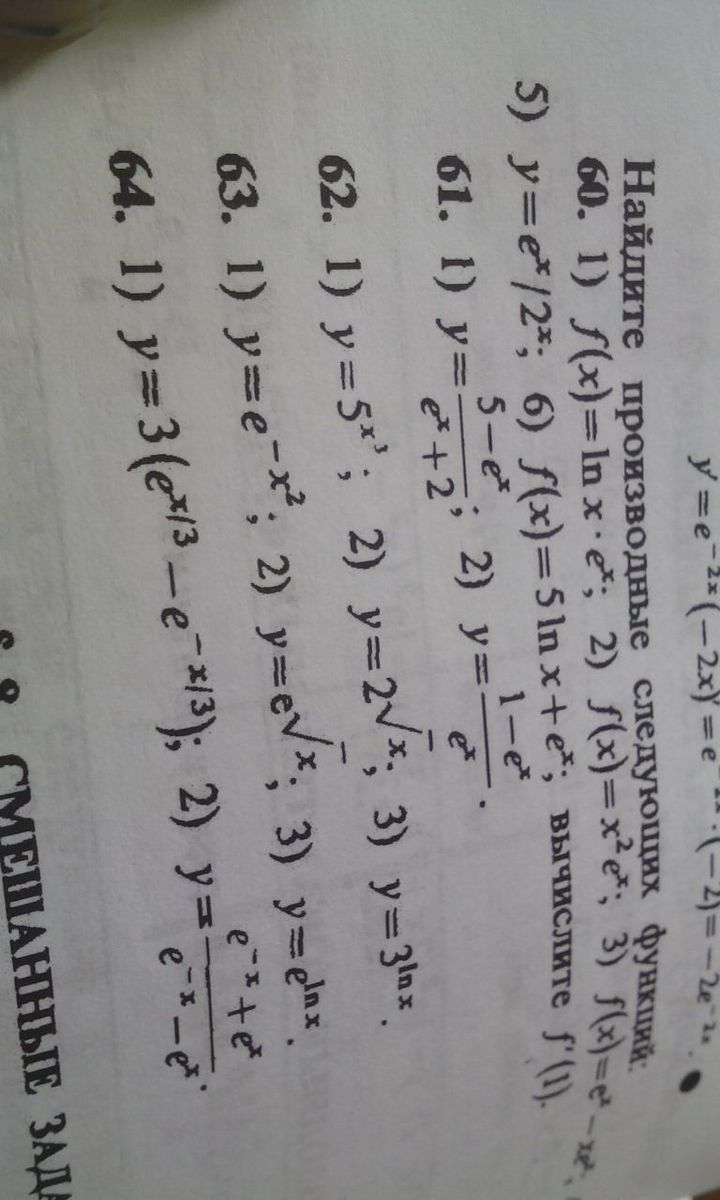 y' = e⁻²ˣ(−2x)' = e⁻²ˣ·(−2) = −2e⁻²ˣ.
Найдите производные следующих функций:
60. 1) f(x) = ln x · eˣ; 2) f(x) = x²eˣ; 3) f(x) = eˣ − xeˣ;
5) y = eˣ/2ˣ; 6) f(x) = 5 ln x + eˣ; вычислите f'(1).
61. 1) y = (5 − eˣ)/(eˣ + 2); 2) y = (1 − eˣ)/eˣ.
62. 1) y = 5^(x³); 2) y = 2^(√x); 3) y = 3^(ln x).
63. 1) y = e^(−x²); 2) y = e^(√x); 3) y = e^(ln x).
64. 1) y = 3(e^(x/3) − e^(−x/3)); 2) y = (e⁻ˣ + eˣ)/(e⁻ˣ − eˣ).
СМЕШАННЫЕ